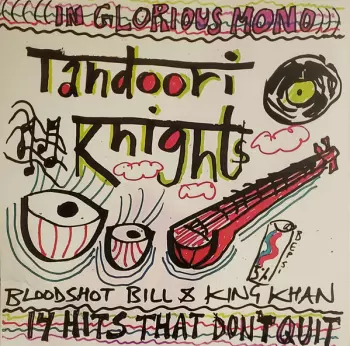 IN GLORIOUS MONO
Tandoori
Knights
BLOODSHOT BILL & KING KHAN
14 HITS THAT DON'T QUIT